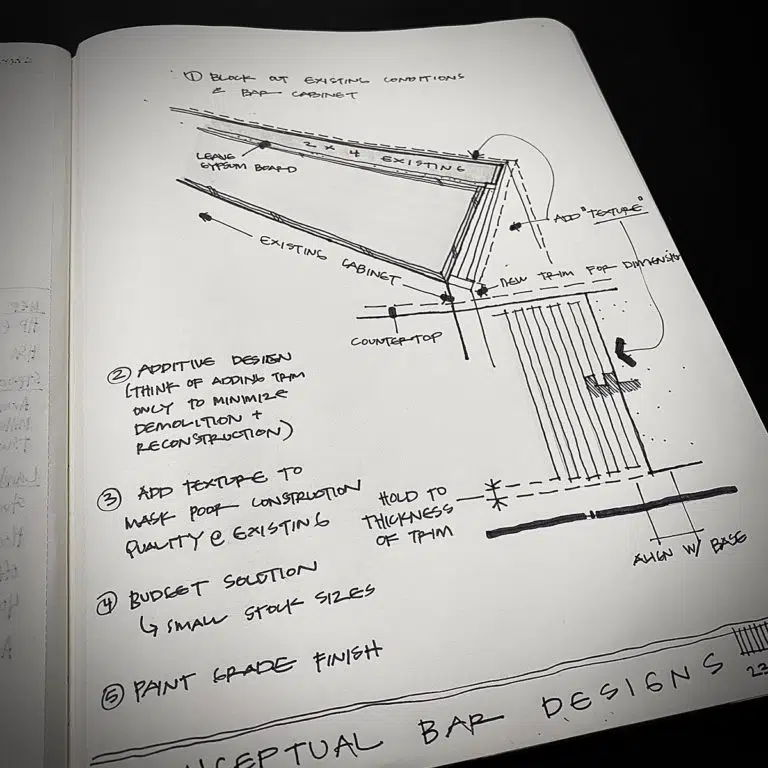 ① BLOCK OUT EXISTING CONDITIONS
& BAR CABINET
2 X 4 EXISTING
LEAVE
GYPSUM BOARD
ADD "TEXTURE"
EXISTING CABINET
NEW TRIM FOR DIMENSION
COUNTERTOP
② ADDITIVE DESIGN
(THINK OF ADDING TRIM
ONLY TO MINIMIZE
DEMOLITION +
RECONSTRUCTION)
③ ADD TEXTURE TO
MASK POOR CONSTRUCTION
QUALITY @ EXISTING
HOLD TO
THICKNESS
OF TRIM
ALIGN W/ BASE
④ BUDGET SOLUTION
↳ SMALL STOCK SIZES
⑤ PAINT GRADE FINISH
NCEPTUAL BAR DESIGNS
23